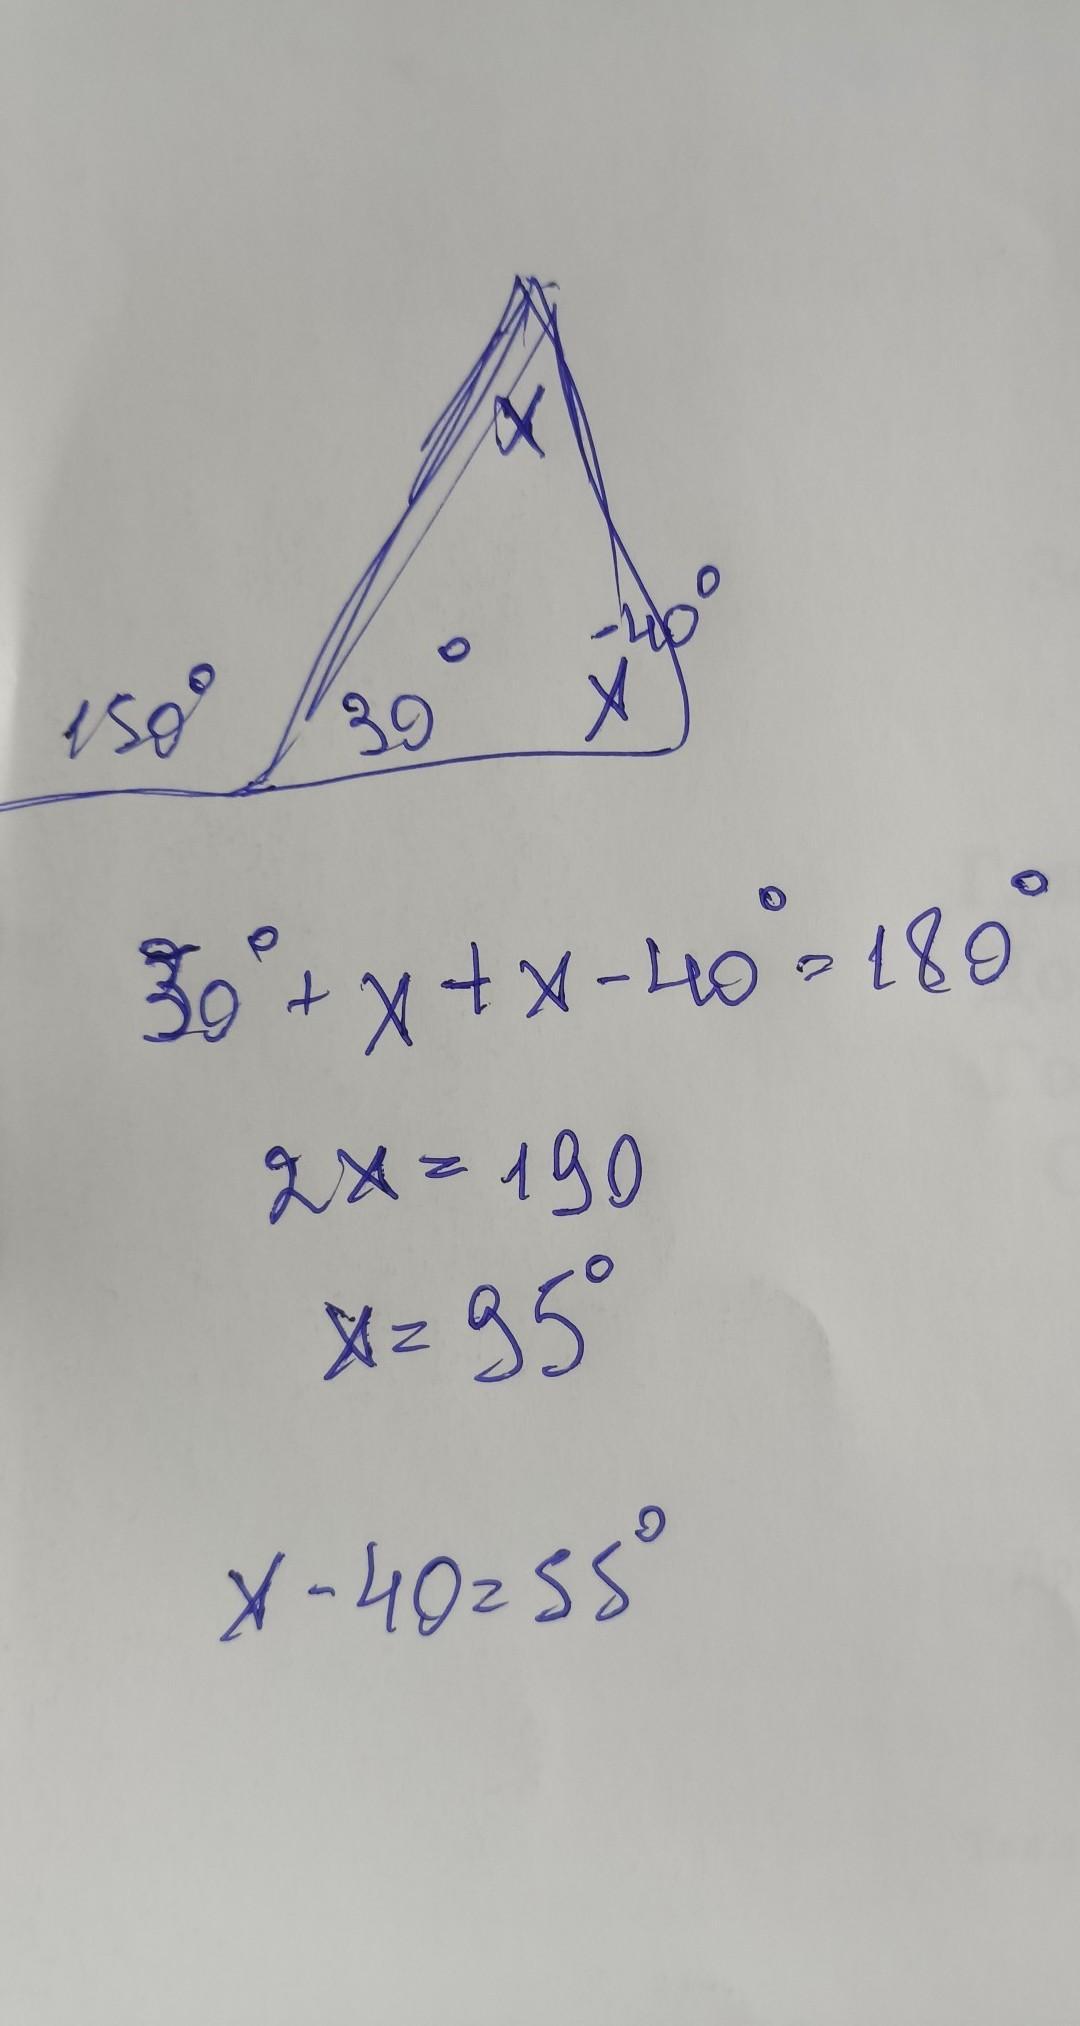 x
-40°
150° 30° x
30° + x + x - 40° = 180°
2x = 190
x = 95°
x - 40 = 55°